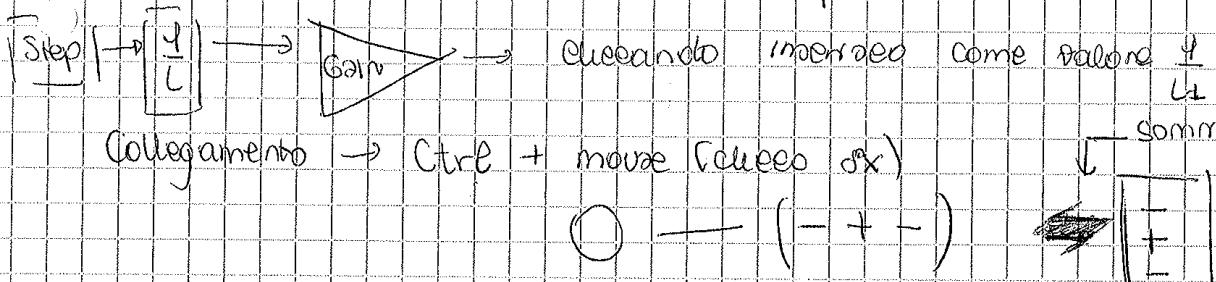 Step → 1/L → Gain → cliccando inserisco come valore 1/L1
Collegamento → Ctrl + mouse (clicco dx)
somm
( - + - )
-
+
-